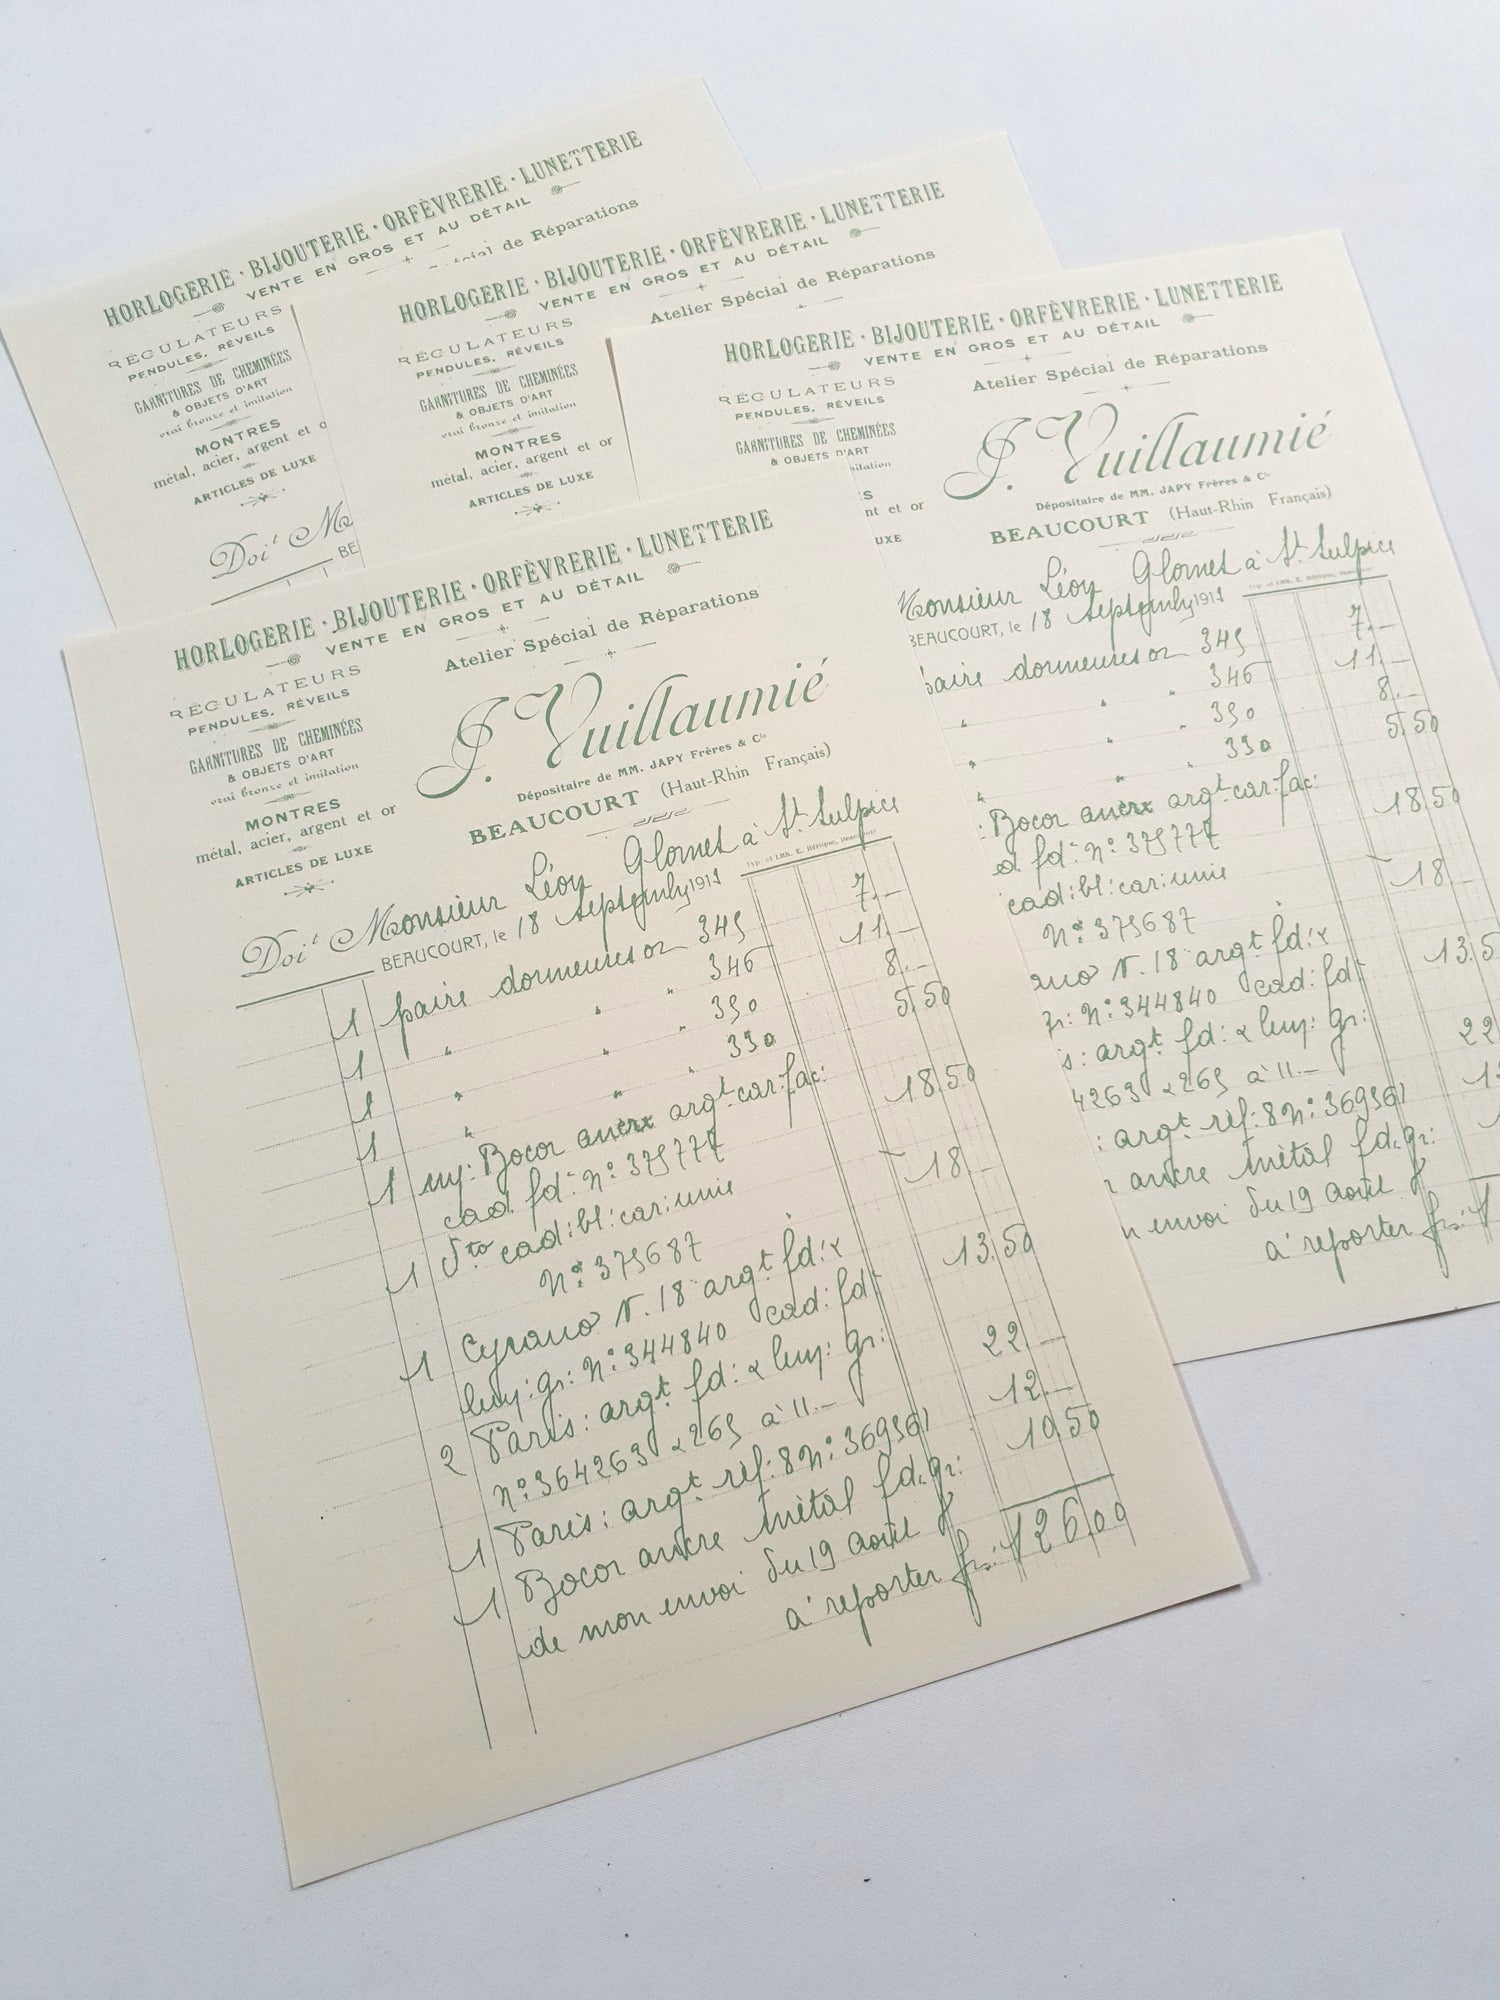 HORLOGERIE · BIJOUTERIE · ORFÈVRERIE · LUNETTERIE
VENTE EN GROS ET AU DÉTAIL
spécial de Réparations
RÉGULATEURS
PENDULES, RÉVEILS
GARNITURES DE CHEMINÉES
& OBJETS D'ART
vrai bronze et imitation
MONTRES
métal, acier, argent et o
ARTICLES DE LUXE
Doit M
BE
HORLOGERIE · BIJOUTERIE · ORFÈVRERIE · LUNETTERIE
VENTE EN GROS ET AU DÉTAIL
Atelier Spécial de Réparations
RÉGULATEURS
PENDULES, RÉVEILS
GARNITURES DE CHEMINÉES
& OBJETS D'ART
vrai bronze et imitation
MONTRES
métal, acier, argent et or
ARTICLES DE LUXE
HORLOGERIE · BIJOUTERIE · ORFÈVRERIE · LUNETTERIE
VENTE EN GROS ET AU DÉTAIL
Atelier Spécial de Réparations
RÉGULATEURS
PENDULES, RÉVEILS
GARNITURES DE CHEMINÉES
& OBJETS D'ART
imitation
S
nt et or
UXE
J. Vuillaumié
Dépositaire de MM. JAPY Frères & Cie
BEAUCOURT (Haut-Rhin Français)
Monsieur Léon à St Sulpice
BEAUCOURT, le 18 1911
paire dormeuses or 345 7.—
" " 346 11.—
" " 350 8.—
" " 330 5.50
: Bocor ancre argt car: fac: 18.50
cad. fd: No: 375777
cad: bl: car: unie 18.—
No: 375687
ano N. 18 argt fd: & 13.5
gr: No: 344840 cad: fd:
s: argt fd: & luy: gr: 22
4263 & 265 à 11.—
: argt. réf: 8 No: 369561 1
ancre métal fd. gr:
n envoi du 19 août
à reporter frs: 1
HORLOGERIE · BIJOUTERIE · ORFÈVRERIE · LUNETTERIE
VENTE EN GROS ET AU DÉTAIL
Atelier Spécial de Réparations
RÉGULATEURS
PENDULES, RÉVEILS
GARNITURES DE CHEMINÉES
& OBJETS D'ART
vrai bronze et imitation
MONTRES
métal, acier, argent et or
ARTICLES DE LUXE
J. Vuillaumié
Dépositaire de MM. JAPY Frères & Cie
BEAUCOURT (Haut-Rhin Français)
Doit Monsieur Léon à St Sulpice
BEAUCOURT, le 18 1911
1 paire dormeuses or 345 7.—
1 " " " 346 11.—
1 " " " 350 8.—
1 " " " 330 5.50
1 luy: Bocor ancre argt car: fac: 18.50
cad. fd: No: 375777
1 dto cad: bl: car: unie 18.—
No: 375687
1 Cyrano N. 18 argt fd: & 13.50
luy: gr: No: 344840 cad: fd:
2 Paris: argt fd: & luy: gr: 22.—
No: 364263 & 265 à 11.—
1 Paris: argt réf: 8 No: 369561 12.—
1 Bocor ancre métal fd. gr: 10.50
de mon envoi du 19 août
à reporter frs: 126.00